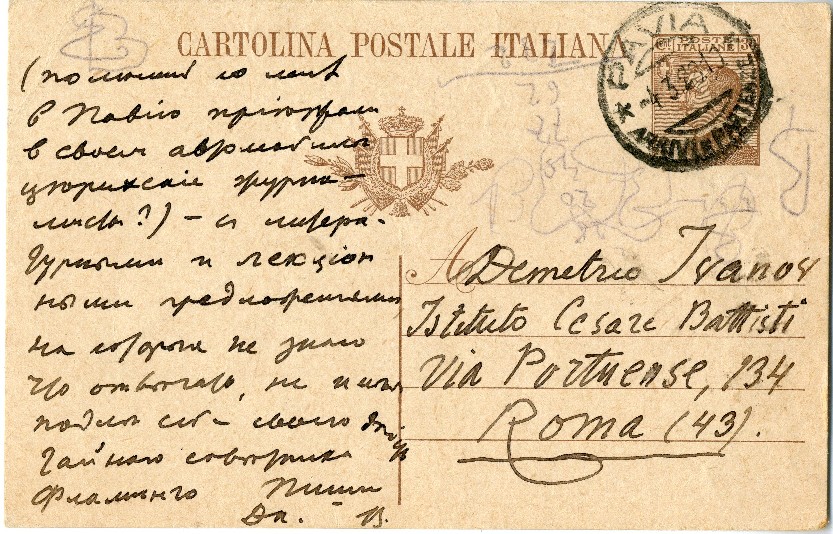 CARTOLINA POSTALE ITALIANA
POSTE
ITALIANE
PAVIA
ARRIVI E PARTENZE
(помнишь ко мне
в Павию приезжали
в своем автомобиле
цюрихские журна-
листы?) – с литера-
турными и лекцiон
ными предложениями,
на которыя не знаю
что отвечать, не имея
подле себя своего
тайнаго советника
Фламинго Пиши
В.
A Demetrio Ivanov
Istituto Cesare Battisti
Via Portuense, 134
Roma (43).